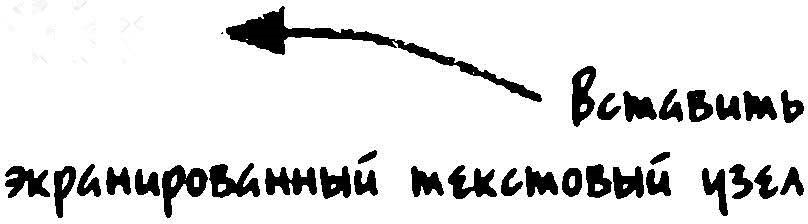 Вставить
экранированный текстовый узел